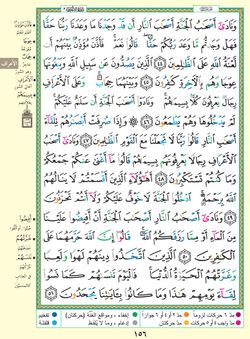 وَنَادَىٰٓ أَصْحَٰبُ ٱلْجَنَّةِ أَصْحَٰبَ ٱلنَّارِ أَن قَدْ وَجَدْنَا مَا وَعَدَنَا رَبُّنَا حَقًّا
فَهَلْ وَجَدتُّم مَّا وَعَدَ رَبُّكُمْ حَقًّا ۖ قَالُوا۟ نَعَمْ ۚ فَأَذَّنَ مُؤَذِّنٌۢ بَيْنَهُمْ أَن
لَّعْنَةُ ٱللَّهِ عَلَى ٱلظَّٰلِمِينَ ٤٤ ٱلَّذِينَ يَصُدُّونَ عَن سَبِيلِ ٱللَّهِ وَيَبْغُونَهَا
عِوَجًا وَهُم بِٱلْءَاخِرَةِ كَٰفِرُونَ ٤٥ وَبَيْنَهُمَا حِجَابٌ ۚ وَعَلَى ٱلْأَعْرَافِ
رِجَالٌ يَعْرِفُونَ كُلًّۢا بِسِيمَىٰهُمْ ۚ وَنَادَوْا۟ أَصْحَٰبَ ٱلْجَنَّةِ أَن سَلَٰمٌ عَلَيْكُمْ ۚ
لَمْ يَدْخُلُوهَا وَهُمْ يَطْمَعُونَ ٤٦ وَإِذَا صُرِفَتْ أَبْصَٰرُهُمْ تِلْقَآءَ
أَصْحَٰبِ ٱلنَّارِ قَالُوا۟ رَبَّنَا لَا تَجْعَلْنَا مَعَ ٱلْقَوْمِ ٱلظَّٰلِمِينَ ٤٧ وَنَادَىٰٓ أَصْحَٰبُ
ٱلْأَعْرَافِ رِجَالًا يَعْرِفُونَهُم بِسِيمَىٰهُمْ قَالُوا۟ مَآ أَغْنَىٰ عَنكُمْ جَمْعُكُمْ
وَمَا كُنتُمْ تَسْتَكْبِرُونَ ٤٨ أَهَٰٓؤُلَآءِ ٱلَّذِينَ أَقْسَمْتُمْ لَا يَنَالُهُمُ
ٱللَّهُ بِرَحْمَةٍ ۚ ٱدْخُلُوا۟ ٱلْجَنَّةَ لَا خَوْفٌ عَلَيْكُمْ وَلَآ أَنتُمْ تَحْزَنُونَ ٤٩
وَنَادَىٰٓ أَصْحَٰبُ ٱلنَّارِ أَصْحَٰبَ ٱلْجَنَّةِ أَنْ أَفِيضُوا۟ عَلَيْنَا
مِنَ ٱلْمَآءِ أَوْ مِمَّا رَزَقَكُمُ ٱللَّهُ ۚ قَالُوٓا۟ إِنَّ ٱللَّهَ حَرَّمَهُمَا عَلَى
ٱلْكَٰفِرِينَ ٥٠ ٱلَّذِينَ ٱتَّخَذُوا۟ دِينَهُمْ لَهْوًا وَلَعِبًا
وَغَرَّتْهُمُ ٱلْحَيَوٰةُ ٱلدُّنْيَا ۚ فَٱلْيَوْمَ نَنسَىٰهُمْ كَمَا نَسُوا۟
لِقَآءَ يَوْمِهِمْ هَٰذَا وَمَا كَانُوا۟ بِـَٔايَٰتِنَا يَجْحَدُونَ ٥١
١٥٦